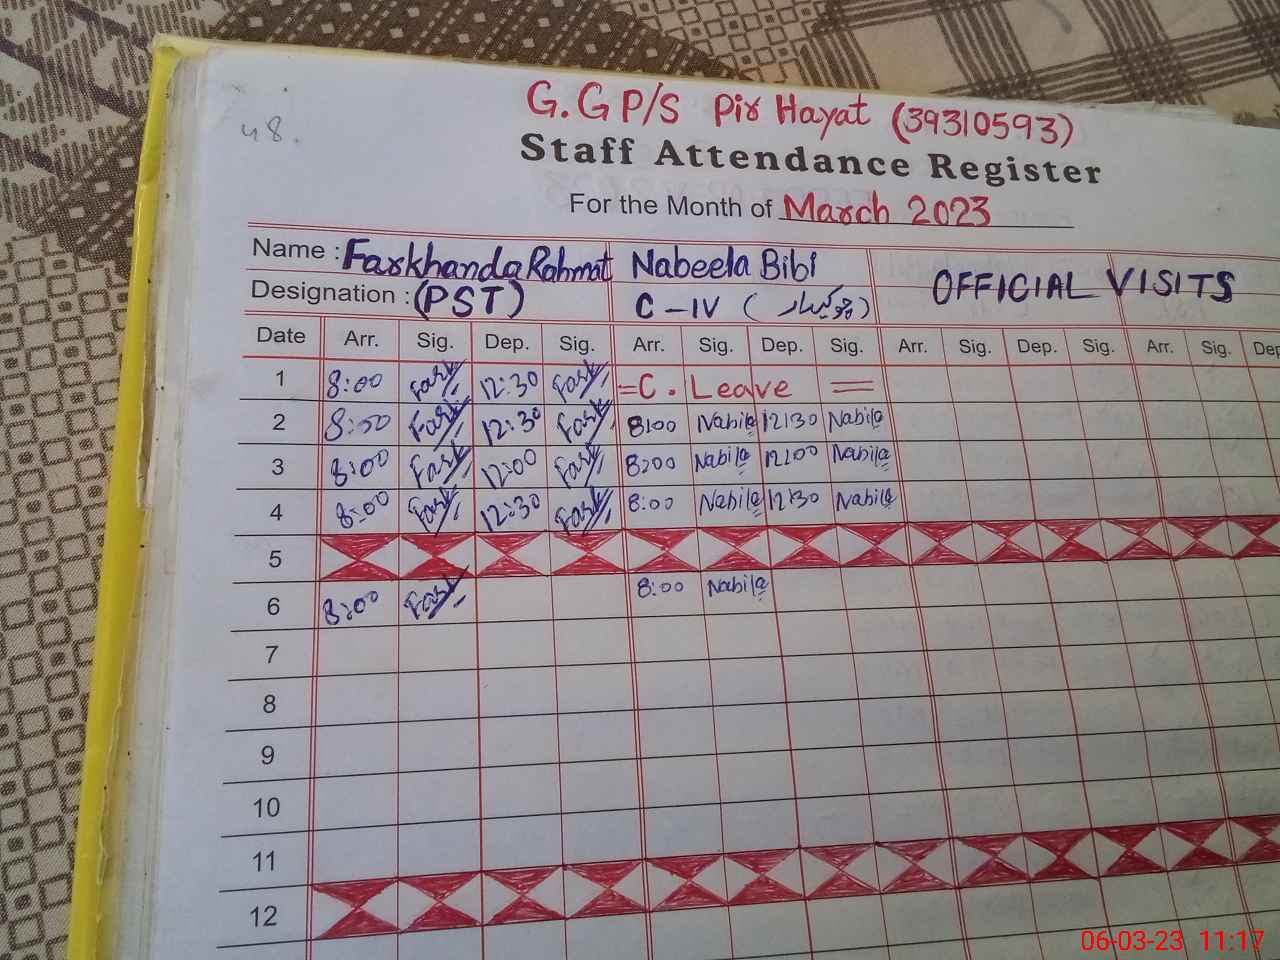 48.
G.G P/S Pir Hayat (39310593)
Staff Attendance Register
For the Month of March 2023
Name : Farkhanda Rahmat Nabeela Bibi OFFICIAL VISITS
Designation : (PST) C-IV (چوکیدار)
Date Arr. Sig. Dep. Sig. Arr. Sig. Dep. Sig. Arr. Sig. Dep. Sig. Arr. Sig. Dep
1 8:00 Fark 12:30 Fark =C. Leave =
2 8:00 Fark 12:30 Fark 8:00 Nabila 12:30 Nabila
3 8:00 Fark 12:00 Fark 8:00 Nabila 12:00 Nabila
4 8:00 Fark 12:30 Fark 8:00 Nabila 12:30 Nabila
5
6 8:00 Fark 8:00 Nabila
7
8
9
10
11
12
06-03-23 11:17